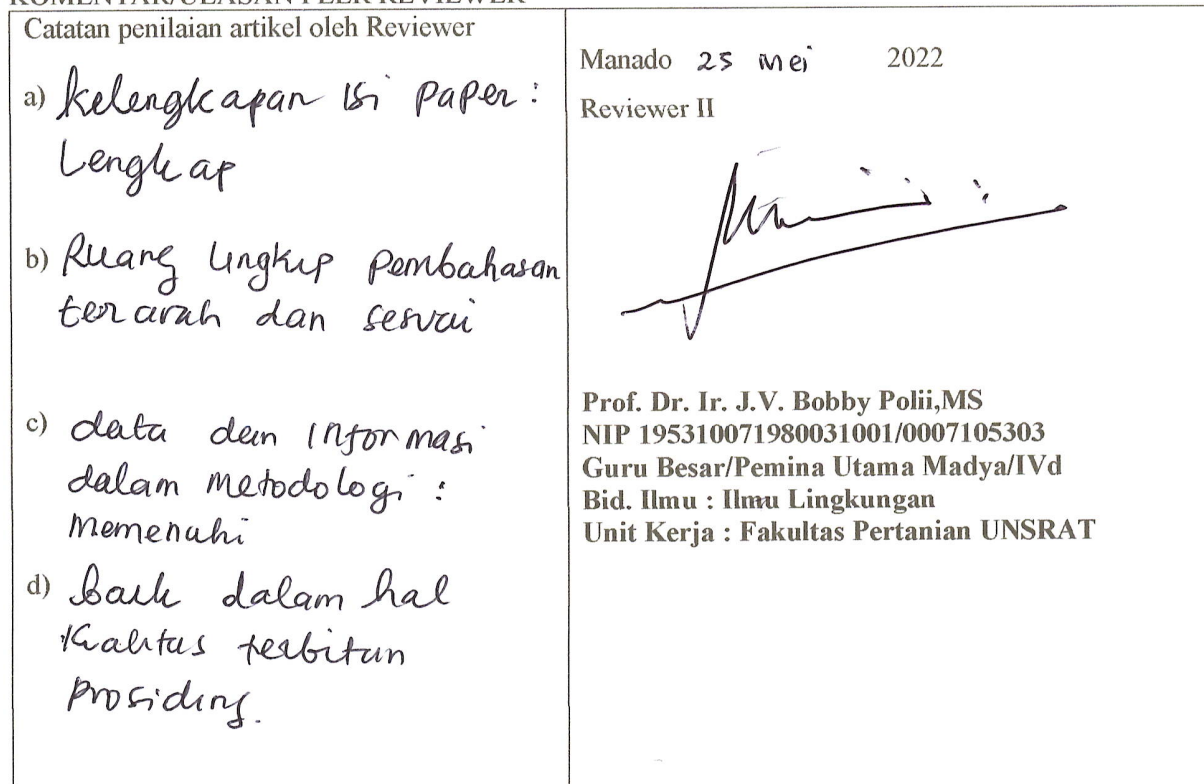 KOMENTAR/ULASAN PEER REVIEWER
Catatan penilaian artikel oleh Reviewer
a) Kelengkapan isi paper :
Lengkap
b) Ruang lingkup pembahasan
terarah dan sesuai
c) data dan informasi
dalam metodologi :
memenuhi
d) Baik dalam hal
kualitas terbitan
prosiding.
Manado 25 mei 2022
Reviewer II
Prof. Dr. Ir. J.V. Bobby Polii,MS
NIP 195310071980031001/0007105303
Guru Besar/Pemina Utama Madya/IVd
Bid. Ilmu : Ilmu Lingkungan
Unit Kerja : Fakultas Pertanian UNSRAT